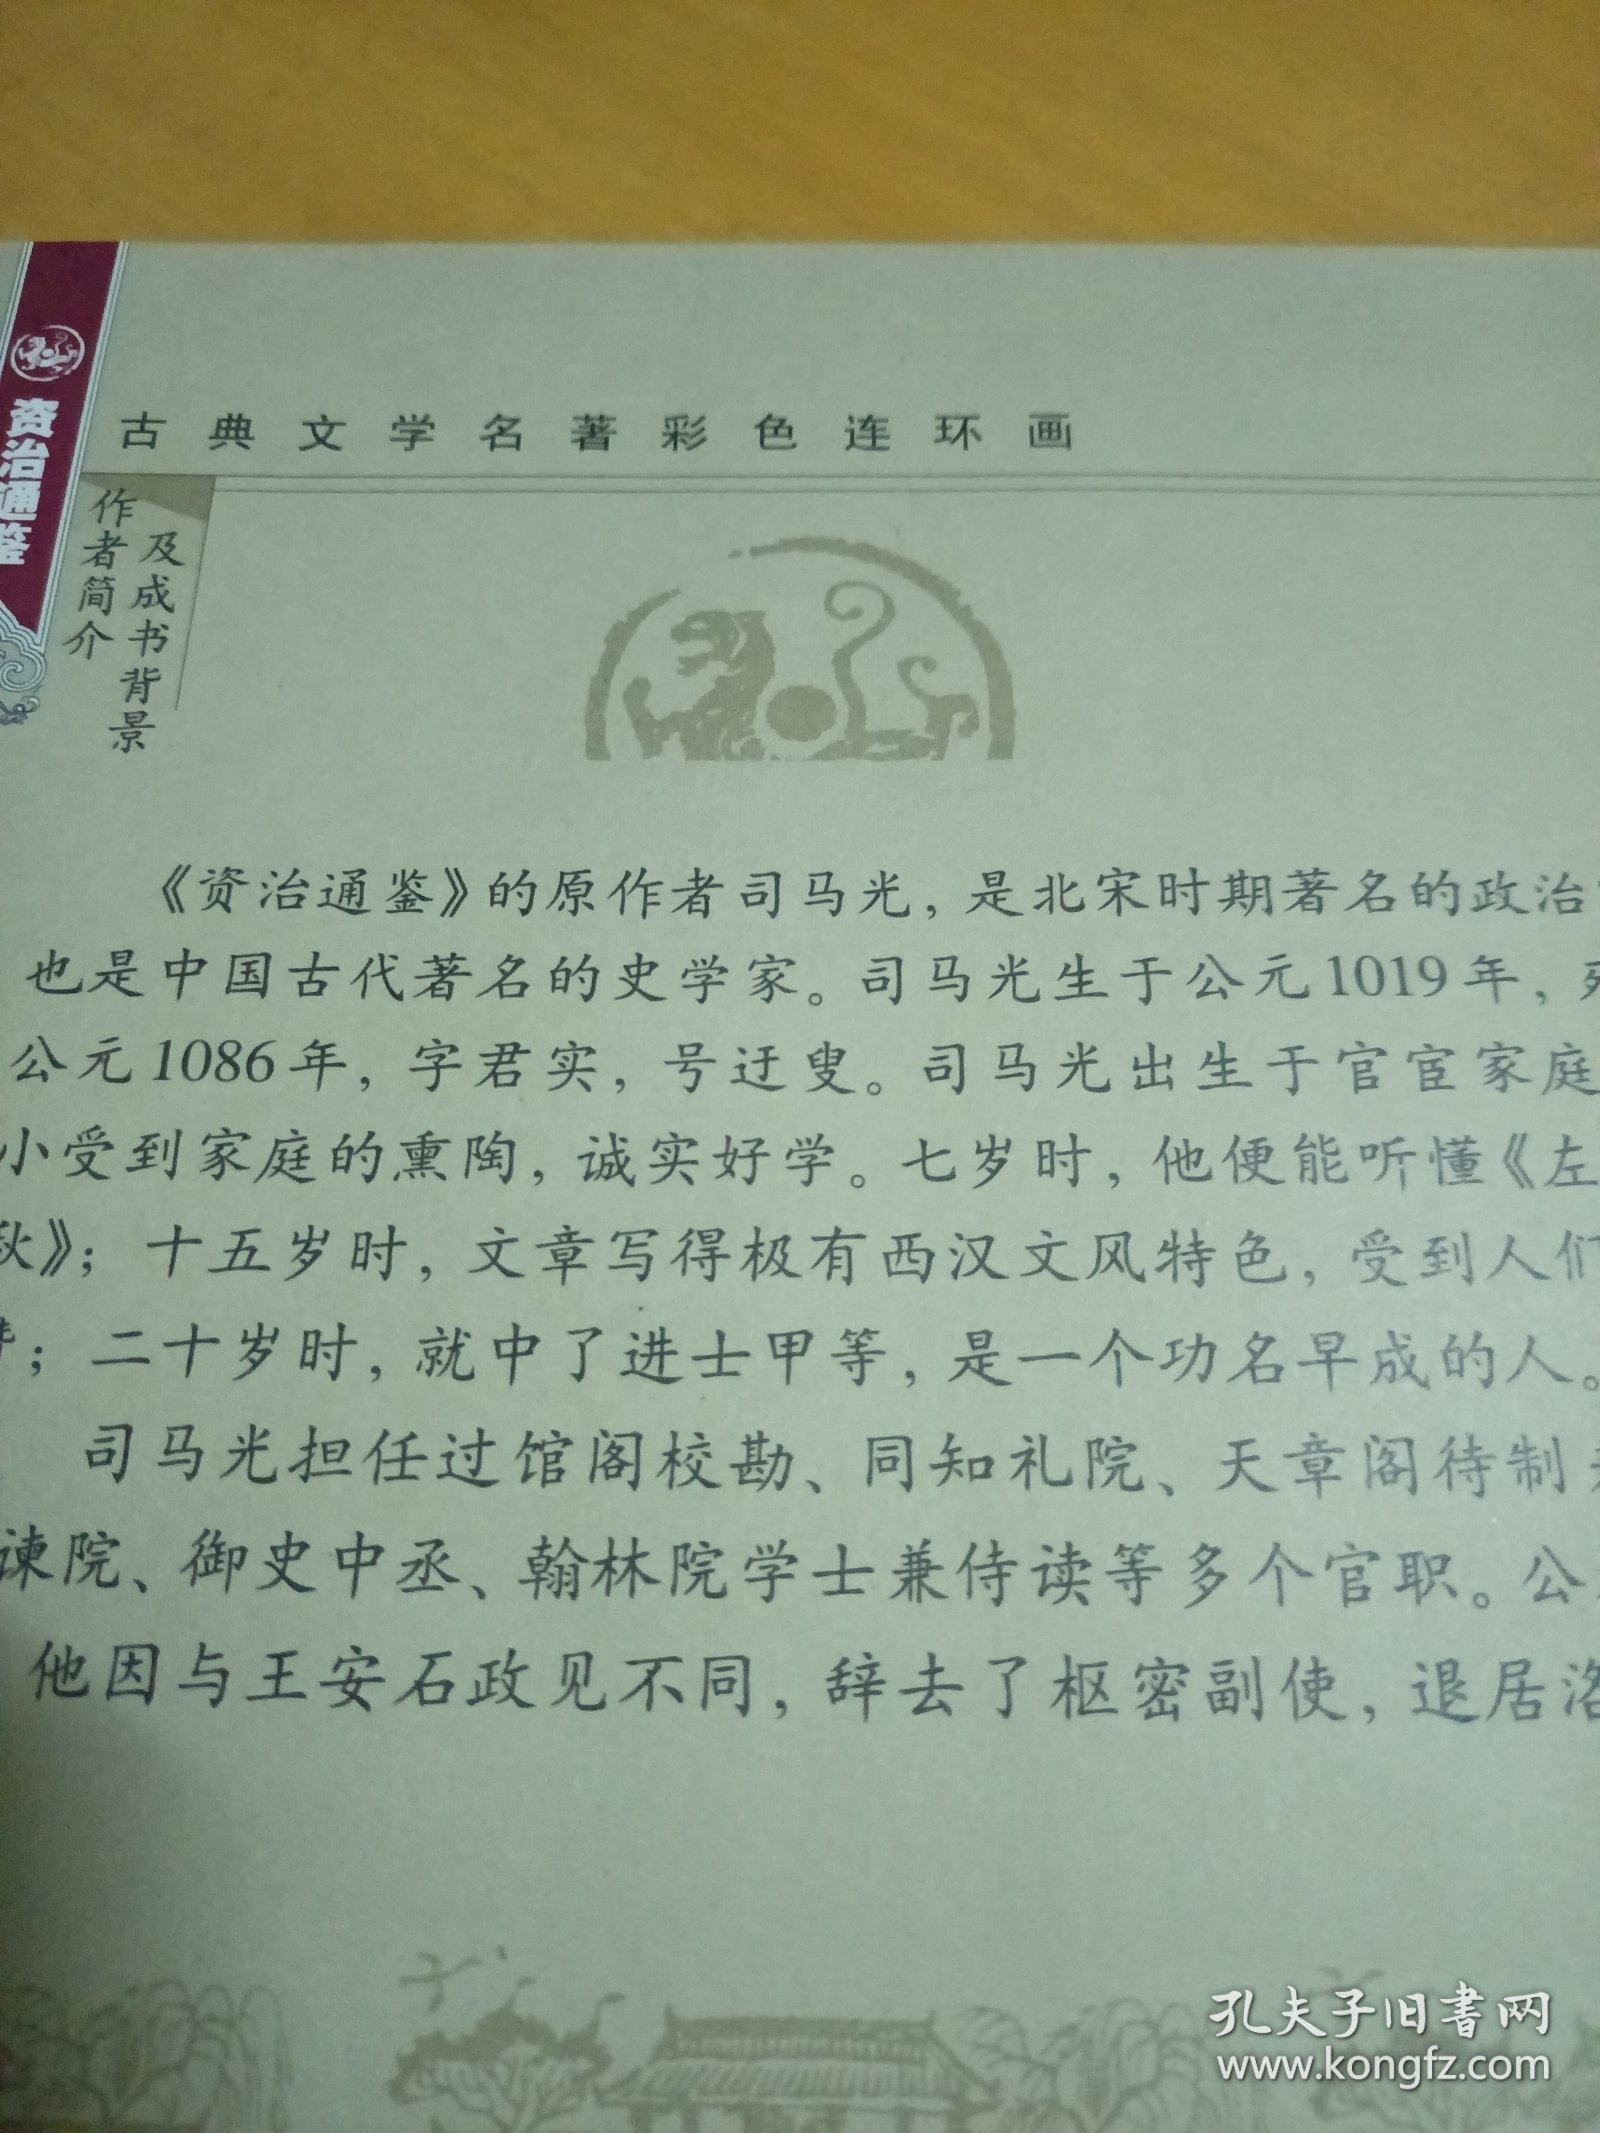 资治通鉴
古典文学名著彩色连环画
作者简介
及成书背景
《资治通鉴》的原作者司马光，是北宋时期著名的政治
也是中国古代著名的史学家。司马光生于公元1019年，
公元1086年，字君实，号迂叟。司马光出生于官宦家庭
小受到家庭的熏陶，诚实好学。七岁时，他便能听懂《左
秋》；十五岁时，文章写得极有西汉文风特色，受到人们
；二十岁时，就中了进士甲等，是一个功名早成的人。
司马光担任过馆阁校勘、同知礼院、天章阁待制
谏院、御史中丞、翰林院学士兼侍读等多个官职。公
他因与王安石政见不同，辞去了枢密副使，退居洛
孔夫子旧书网
www.kongfz.com